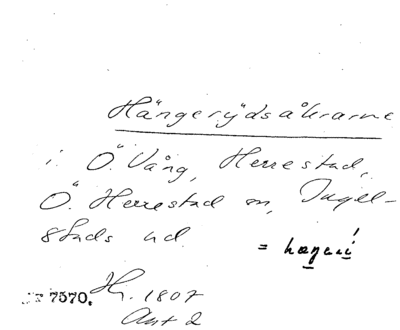 Hängerydsåkrarne
i Ö. Vång, Herrestad,
Ö. Herrestad sn, Ingel-
stads hd
7570. Hs. 1807
Akt 2